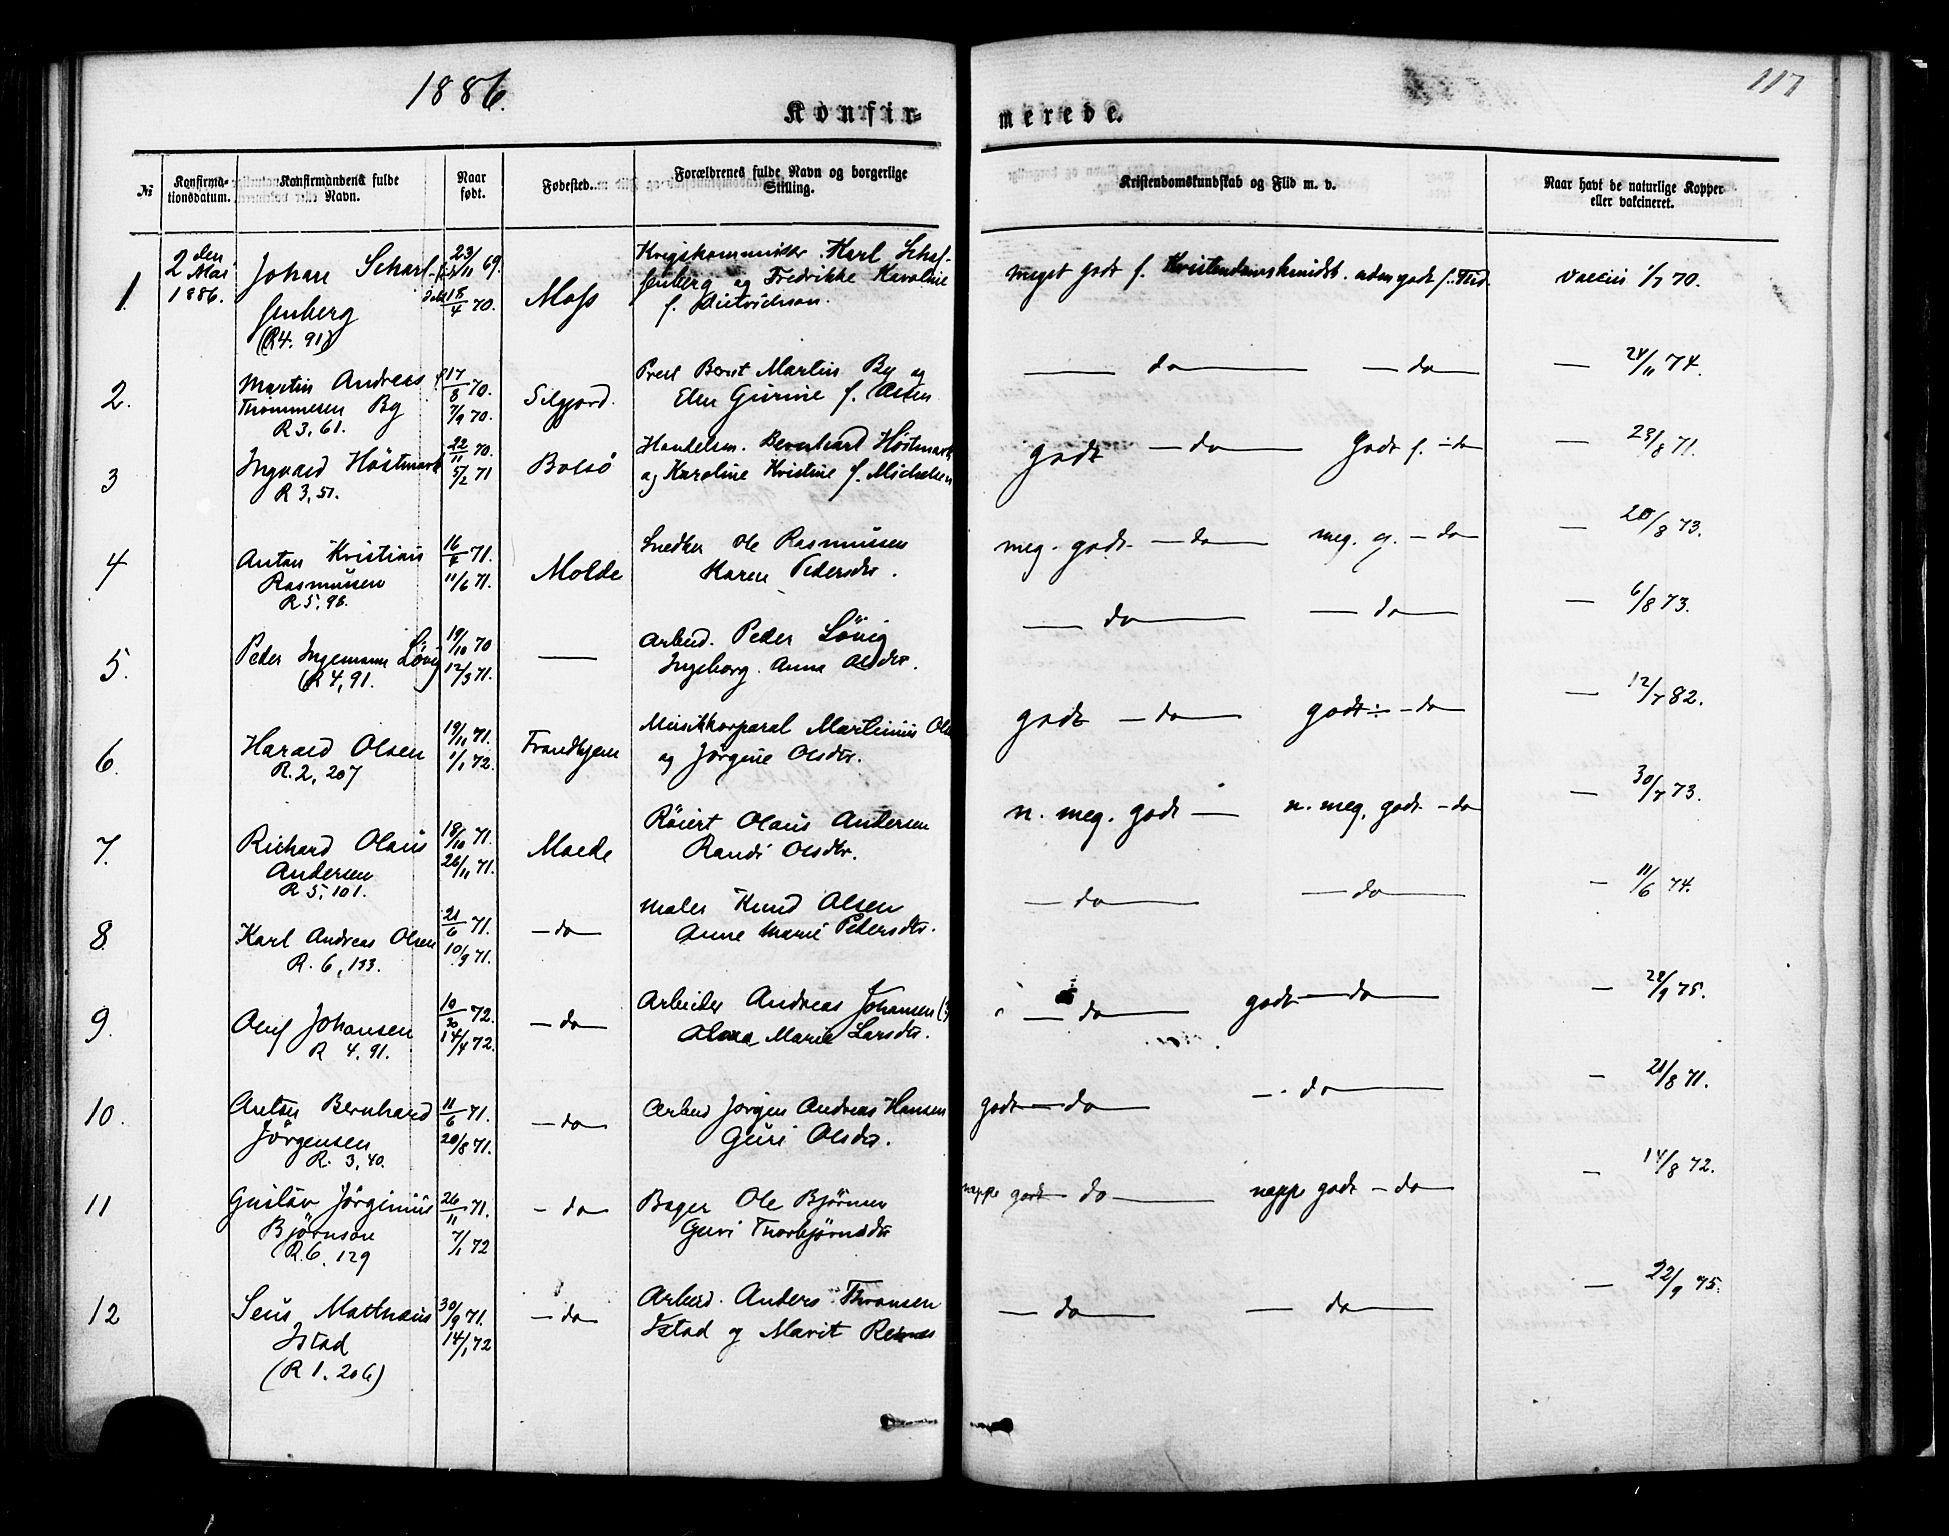 1886.
117
Konfir-
merede.
№
Konfirma-
tionsdatum.
Konfirmandens fulde
Navn.
Naar
født.
Fødested.
Forældrenes fulde Navn og borgerlige
Stilling.
Kristendomskundskab og Flid m. v.
Naar havt de naturlige Kopper
eller vakcineret.
1. 2den Mai 1886. Johan Scharf- 23/11 69. Krigskommissær Karl Schaf-
fenberg døbt 18/4 70. Moss fenberg og Fredrikke Karoline
(R4. 91) f. Dietrichson.
meget godt f. Kristendomskundsk. uden godt f. Flid. vaccin 1/7 70.
2. Martin Andreas f 17/8 70. Prest Bernt Martin By og
Thommesen By 7/9 70. Silgjord. Elen Gurine f. Olsen
R 3, 61.
— do — — do — — 24/11 74.
3 Ingvard Høstmark 22/11 70. Bolsö Handelsm. Bernhard Höstmark
R 3, 51. 5/2 71 og Karoline Kristine f. Michelsen
godt — do — Godt f. - do — 29/8 71.
4 Anton Kristian 16/4 71. Snedker Ole Rasmussen
Rasmussen 11/6 71. Molde Karen Pedersdr.
R 5, 98.
meg. godt — do — meg. g. — do — 20/8 73.
5. Peder Ingemann Løvig 19/10 70 — Arbeid. Peder Lövig
(R 4, 91. 12/3 71. Ingeborg Anna Olsdr.
— do — — do — — 6/8 73.
6. Harald Olsen 19/11 71. Musikkorporal Martinius Ols
R. 2, 207 1/1 72. Trondhjem og Jørgine Olsdtr.
godt — do — godt - do — 12/7 82.
7. Richard Olaus 18/10 71. Röiert Olaus Andersen
Andersen 26/11 71. Molde Randi Olsdtr.
R 5, 101.
n. meg. godt — n. meg. godt - do — 30/7 73.
8. Karl Andreas Olsen 21/6 71. — do — Maler Knud Olsen
R. 6, 133. 10/9 71. Anne Marie Pedersdtr.
— do — — do — — 11/6 74.
9. Oluf Johansen 10/20 72. — do — Arbeider Andreas Johansen
R 4, 91. 14/4 72. Marie Larsdtr.
— do — godt — do — — 22/9 75.
10. Anton Bernhard 11/6 71. — do — Arbeid Jørgen Andreas Hansen
Jørgensen 20/8 71. Guri Olsdr.
R. 3, 40.
godt — do — — do — — 21/8 71.
11 Gustav Jørginius 26/11 71. — do Bager Ole Bjørnsen
Bjørnson 7/1 72 Guri Thorbjørnsdtr
(R. 6, 129
neppe godt do — neppe godt — do — — 14/8 72.
12 Sens Mathæus 30/9 71. — do — Arbeid. Anders Thronsen
Istad 14/1 72 Istad og Marit
(R 1. 206)
— do — — do — — 22/9 75.